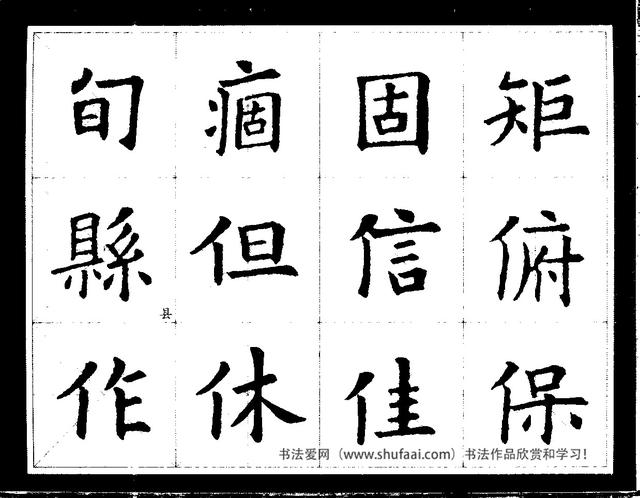 旬痼固矩
縣但信俯
县
作休佳保
书法爱网（www.shufaai.com）书法作品欣赏和学习！